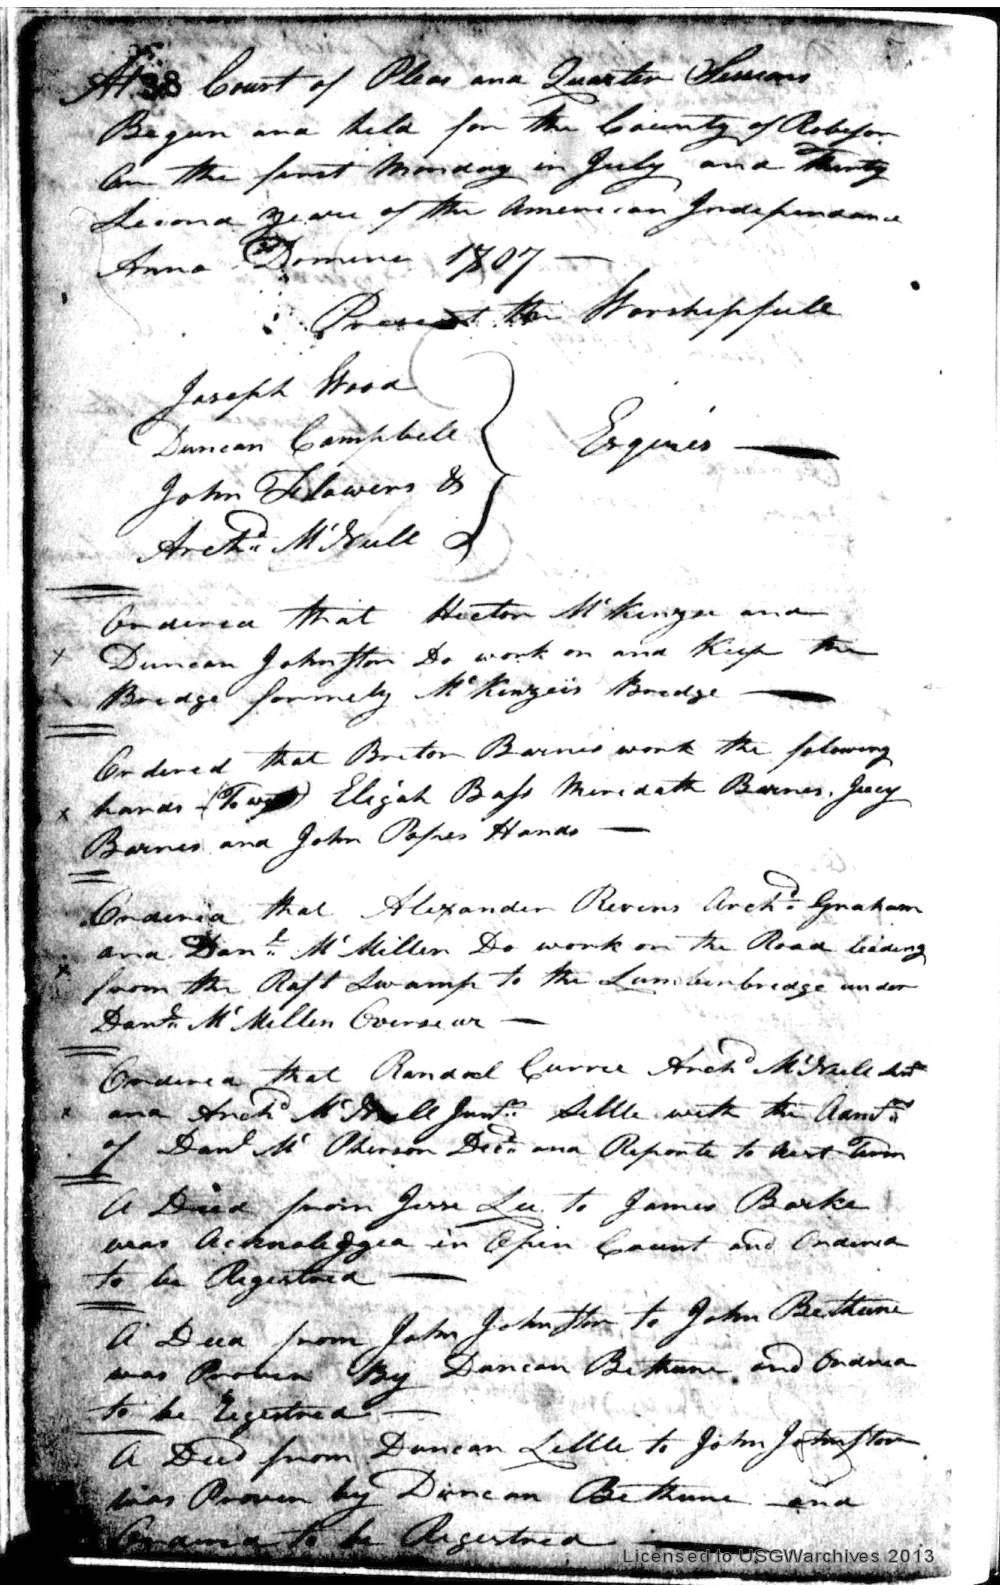 38
At a Court of Pleas and Quarter Sessions
Begun and held for the County of Robeson
On the first Monday in July and Thirty
Second yeare of the American Independance
Anno Domini 1807 —
Present the Worshipfull
Joseph Wood
Duncan Campbell
John Flowers &
Archd. McNeill
Esquires —
Ordered that Hector McKenzee and
x Duncan Johnston Do work on and Keep the
Bridge formely McKenzeis Bredge —
Ordered that Breton Barnes work the folowing
x hands (Towit) Elijah Bass Meredath Barnes,
Barnes and John Popes Hands —
Ordered that Alexander Revins Archd. Graham
and Danl. McMillen Do work on the Road leading
x from the Raft Swamp to the Lumberbredge under
Danl. McMillen Overseur —
Ordered that Randol Currie Archd McNeill Snr
x and Archd McNeill Junr. Settle with the Admrs.
of Danl McPherson Decd. and Reporte to next Term
A Deed from Jesse Lee to James Barke
was Acknoledgea in Open Court and Ordered
to be Regestred —
A Deed from John Johnston to John Bethune
was Proven By Duncan Bethune and Ordred
to be Regestred —
A Deed from Duncan Little to John Johnston
was Proven by Duncan Bethune and
Ordered to be Regestred —
Licensed to USGWarchives 2013